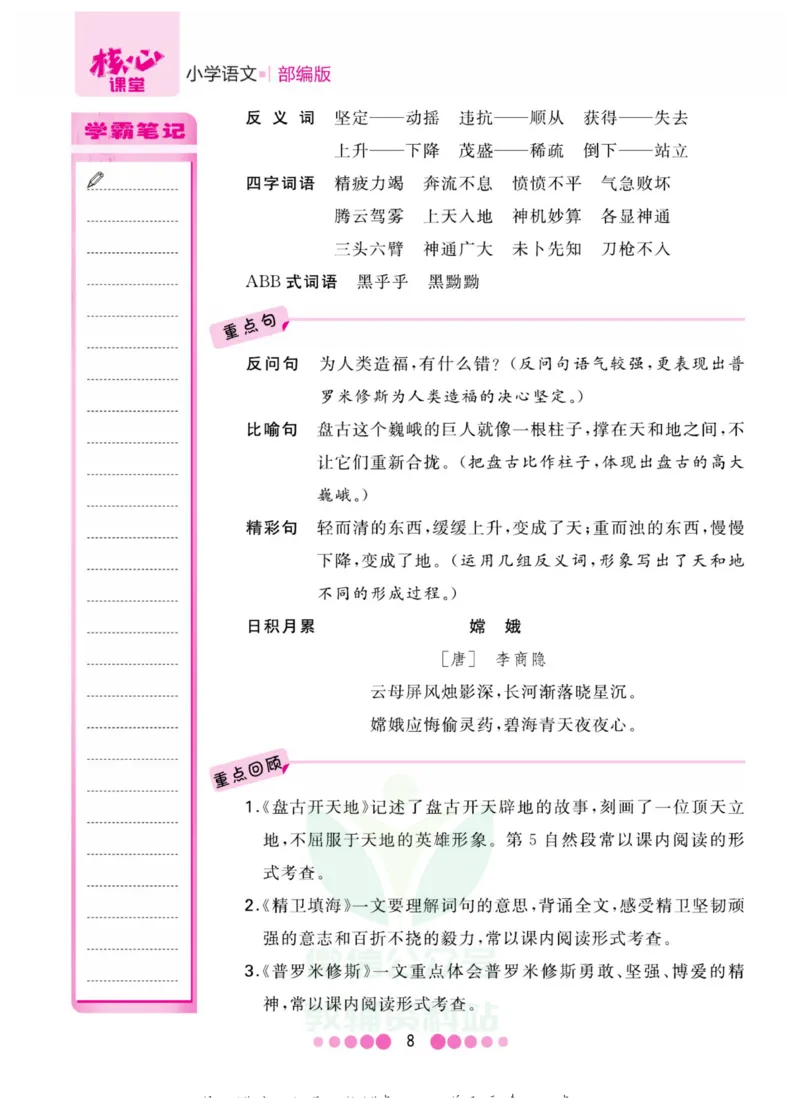 核心
课堂
小学语文 部编版
学霸笔记
反 义 词 坚定——动摇 违抗——顺从 获得——失去
上升——下降 茂盛——稀疏 倒下——站立
四字词语 精疲力竭 奔流不息 愤愤不平 气急败坏
腾云驾雾 上天入地 神机妙算 各显神通
三头六臂 神通广大 未卜先知 刀枪不入
ABB 式词语 黑乎乎 黑黝黝
重点句
反问句 为人类造福,有什么错?(反问句语气较强,更表现出普
罗米修斯为人类造福的决心坚定。)
比喻句 盘古这个巍峨的巨人就像一根柱子,撑在天和地之间,不
让它们重新合拢。(把盘古比作柱子,体现出盘古的高大
巍峨。)
精彩句 轻而清的东西,缓缓上升,变成了天;重而浊的东西,慢慢
下降,变成了地。(运用几组反义词,形象写出了天和地
不同的形成过程。)
日积月累 嫦 娥
[唐] 李商隐
云母屏风烛影深,长河渐落晓星沉。
嫦娥应悔偷灵药,碧海青天夜夜心。
重点回顾
1.《盘古开天地》记述了盘古开天辟地的故事,刻画了一位顶天立
地,不屈服于天地的英雄形象。第 5 自然段常以课内阅读的形
式考查。
2.《精卫填海》一文要理解词句的意思,背诵全文,感受精卫坚韧顽
强的意志和百折不挠的毅力,常以课内阅读形式考查。
3.《普罗米修斯》一文重点体会普罗米修斯勇敢、坚强、博爱的精
神,常以课内阅读形式考查。
微信公众号
教辅资料站
8